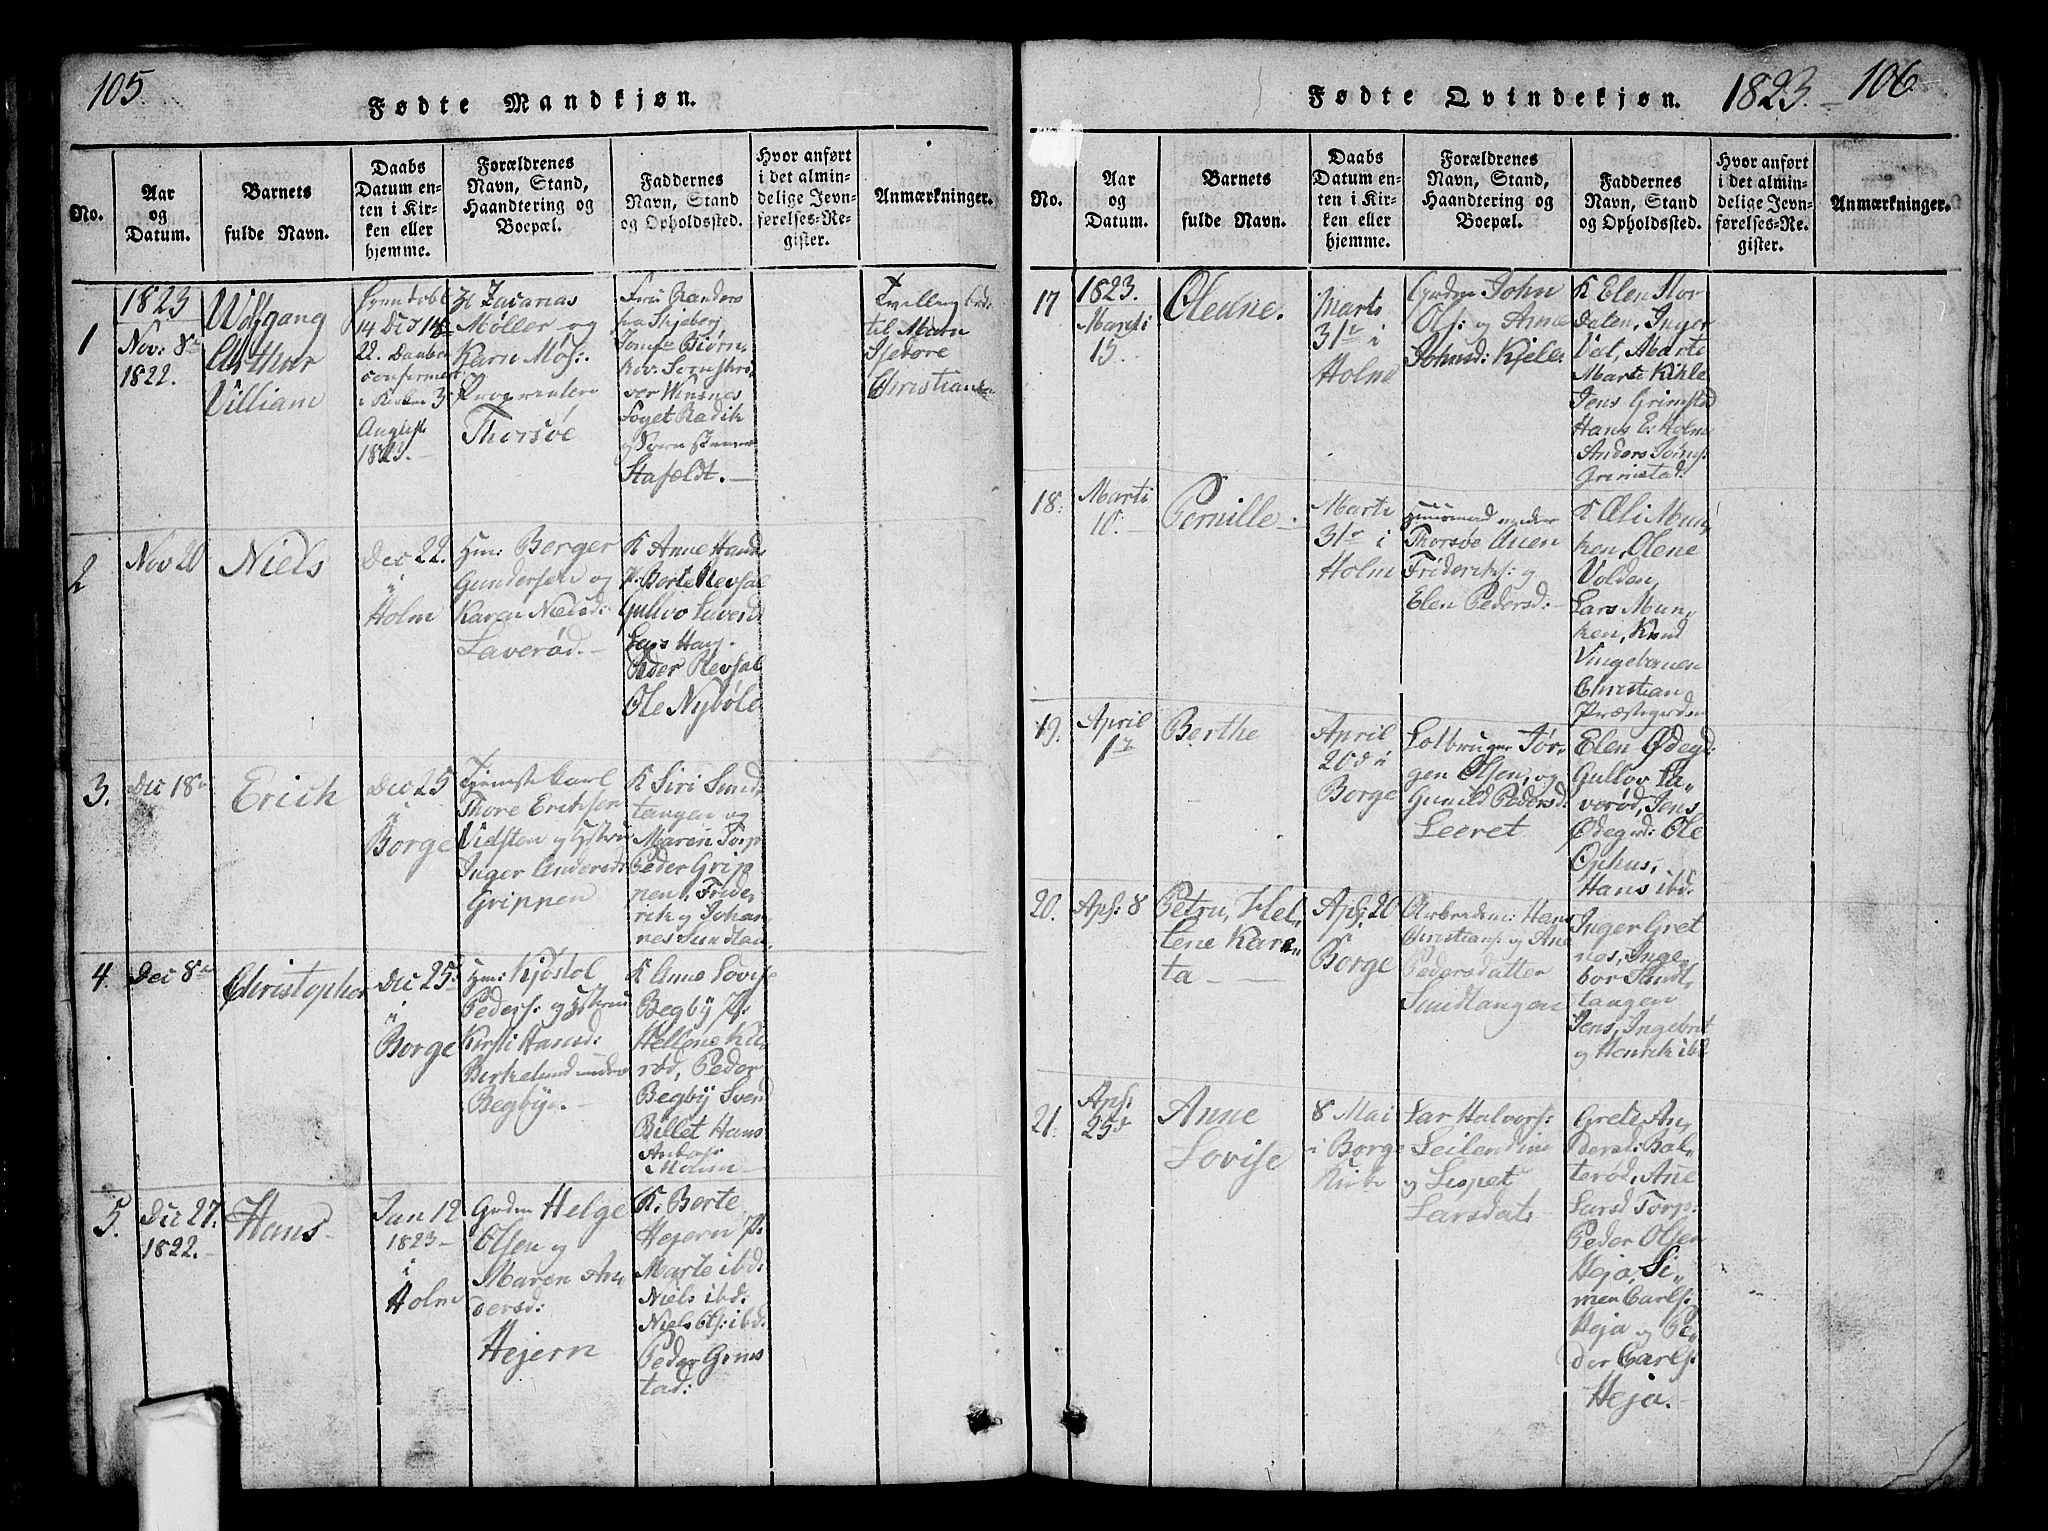 105
Fødte Mandkjøn.
No.
Aar
og
Datum.
Barnets
fulde Navn.
Daabs
Datum en-
ten i Kir-
ken eller
hjemme.
Forældrenes
Navn, Stand,
Haandtering og
Boepæl.
Faddernes
Navn, Stand
og Opholdssted.
Hvor anført
i det almin-
delige Jevn-
førelses-Re-
gister.
Anmærkninger.
1
1823
Nov: 8de
1822.
Wolfgang
Arthur
Villiam
14 Dec 18
22. Daaben
confirmert
i Kirken 3
August
1823.
Hr Zacarias
Møller og
Karn
Thorsøe
fra Skjeberg
Foget Radik
Stafeldt.
Tvilling
til Maren
Isedore
Christiane
2
Nov 20
Niels
Dec 22.
i
Holm
Hm: Berger
Gundersen og
Karen Nielsd:
Laverød.
K Anne Haug
P. Berte Revsal
Gullov Laverød
Lars Haug.
Peder Revsal
Ole Nybøle
3.
Dec 18de
Erich
Dec 25
i
Borge
Tjenstekarl
Thore Eriksen
Vidsten og Hstru
Inger Andersd:
Grippen
K Siri Sund
tangen og
Maren Torp
Peder Grip
nen, Fride
rik og Johan
nes Sundtan
4.
Dec 8de
Christopher
Dec 25
i
Borge
Hm: Kjøstol
Peders: og Hstru
Kirsti Hansd:
Birkelund under
Begbÿe.
K Anne Lovise
Begbÿ P:
Hellene Kil
rød, Peder
Begbÿ Svend
Billet Hans
5.
Dec 27.
1822.
Hans
Jan 12
1823
i
Holm
Grdm Helge
Olsen og
Maren An
dersd:
Hejern
K. Berte
Hejern P:
Marte ibd:
Niels ibd:
Niels Ols: ibd:
Peder Grim
stad:
Fødte Qvindekjøn.
1823.
106
No.
Aar
og
Datum.
Barnets
fulde Navn.
Daabs
Datum en-
ten i Kir-
ken eller
hjemme.
Forældrenes
Navn, Stand,
Haandtering og
Boepæl.
Faddernes
Navn, Stand
og Opholdssted.
Hvor anført
i det almin-
delige Jevn-
førelses-Re-
gister.
Anmærkninger.
17
1823.
Marti
15.
Oleane.
Marti
31te i
Holm
Grdm John
Ols: og Anne
Johnsd: Kjele
K Elen Stor
dalen, Inger
Vet, Marte
Marte Kihle
Jens Grimstad
Hans E: Holm
Anders
Grimstad
18.
Marti
10.
Pernille.
Marti
31te i
Holm
Huusmand under
Thorsøe Aven
Friderichs: og
Elen Pedersd:
K Oli Mun
ken, Olene
Volden,
Lars Mun,
ken, Knud
Vingebanen
Christian
Præstegrden
19.
April
1te
Berthe
April
20de i
Borge
Lotbruger Jør
gen Olsen, og
Gunild Pedersd:
Leeret
Elen Ødegd:
Gullov La,
verød, Jens
Ødegrd: Ole
Ophus,
Hans ibd:
20.
Apl: 8
Petru, Hel,
lene Karen
ta
Apl: 20
i
Borge
Arbeidsm: Hans
Christians: og Ane
Pedersdatter
Sundtangen
Inger Gret
nes, Inge
bor Sund,
tangen
Jens, Ingebrit
og Henrik ibd
21.
Apl:
25de
Anne
Lovise
8 Mai
i Borge
Kirke
Lar Halvors:
Leilending
og Lispet
Larsdat:
Grete An,
dersd: Bol,
terød, Ane
Larsd Torp:
Peder Olsen
Heja, Si,
men Carls:
Heja og Pe,
der Carls:
Heja.